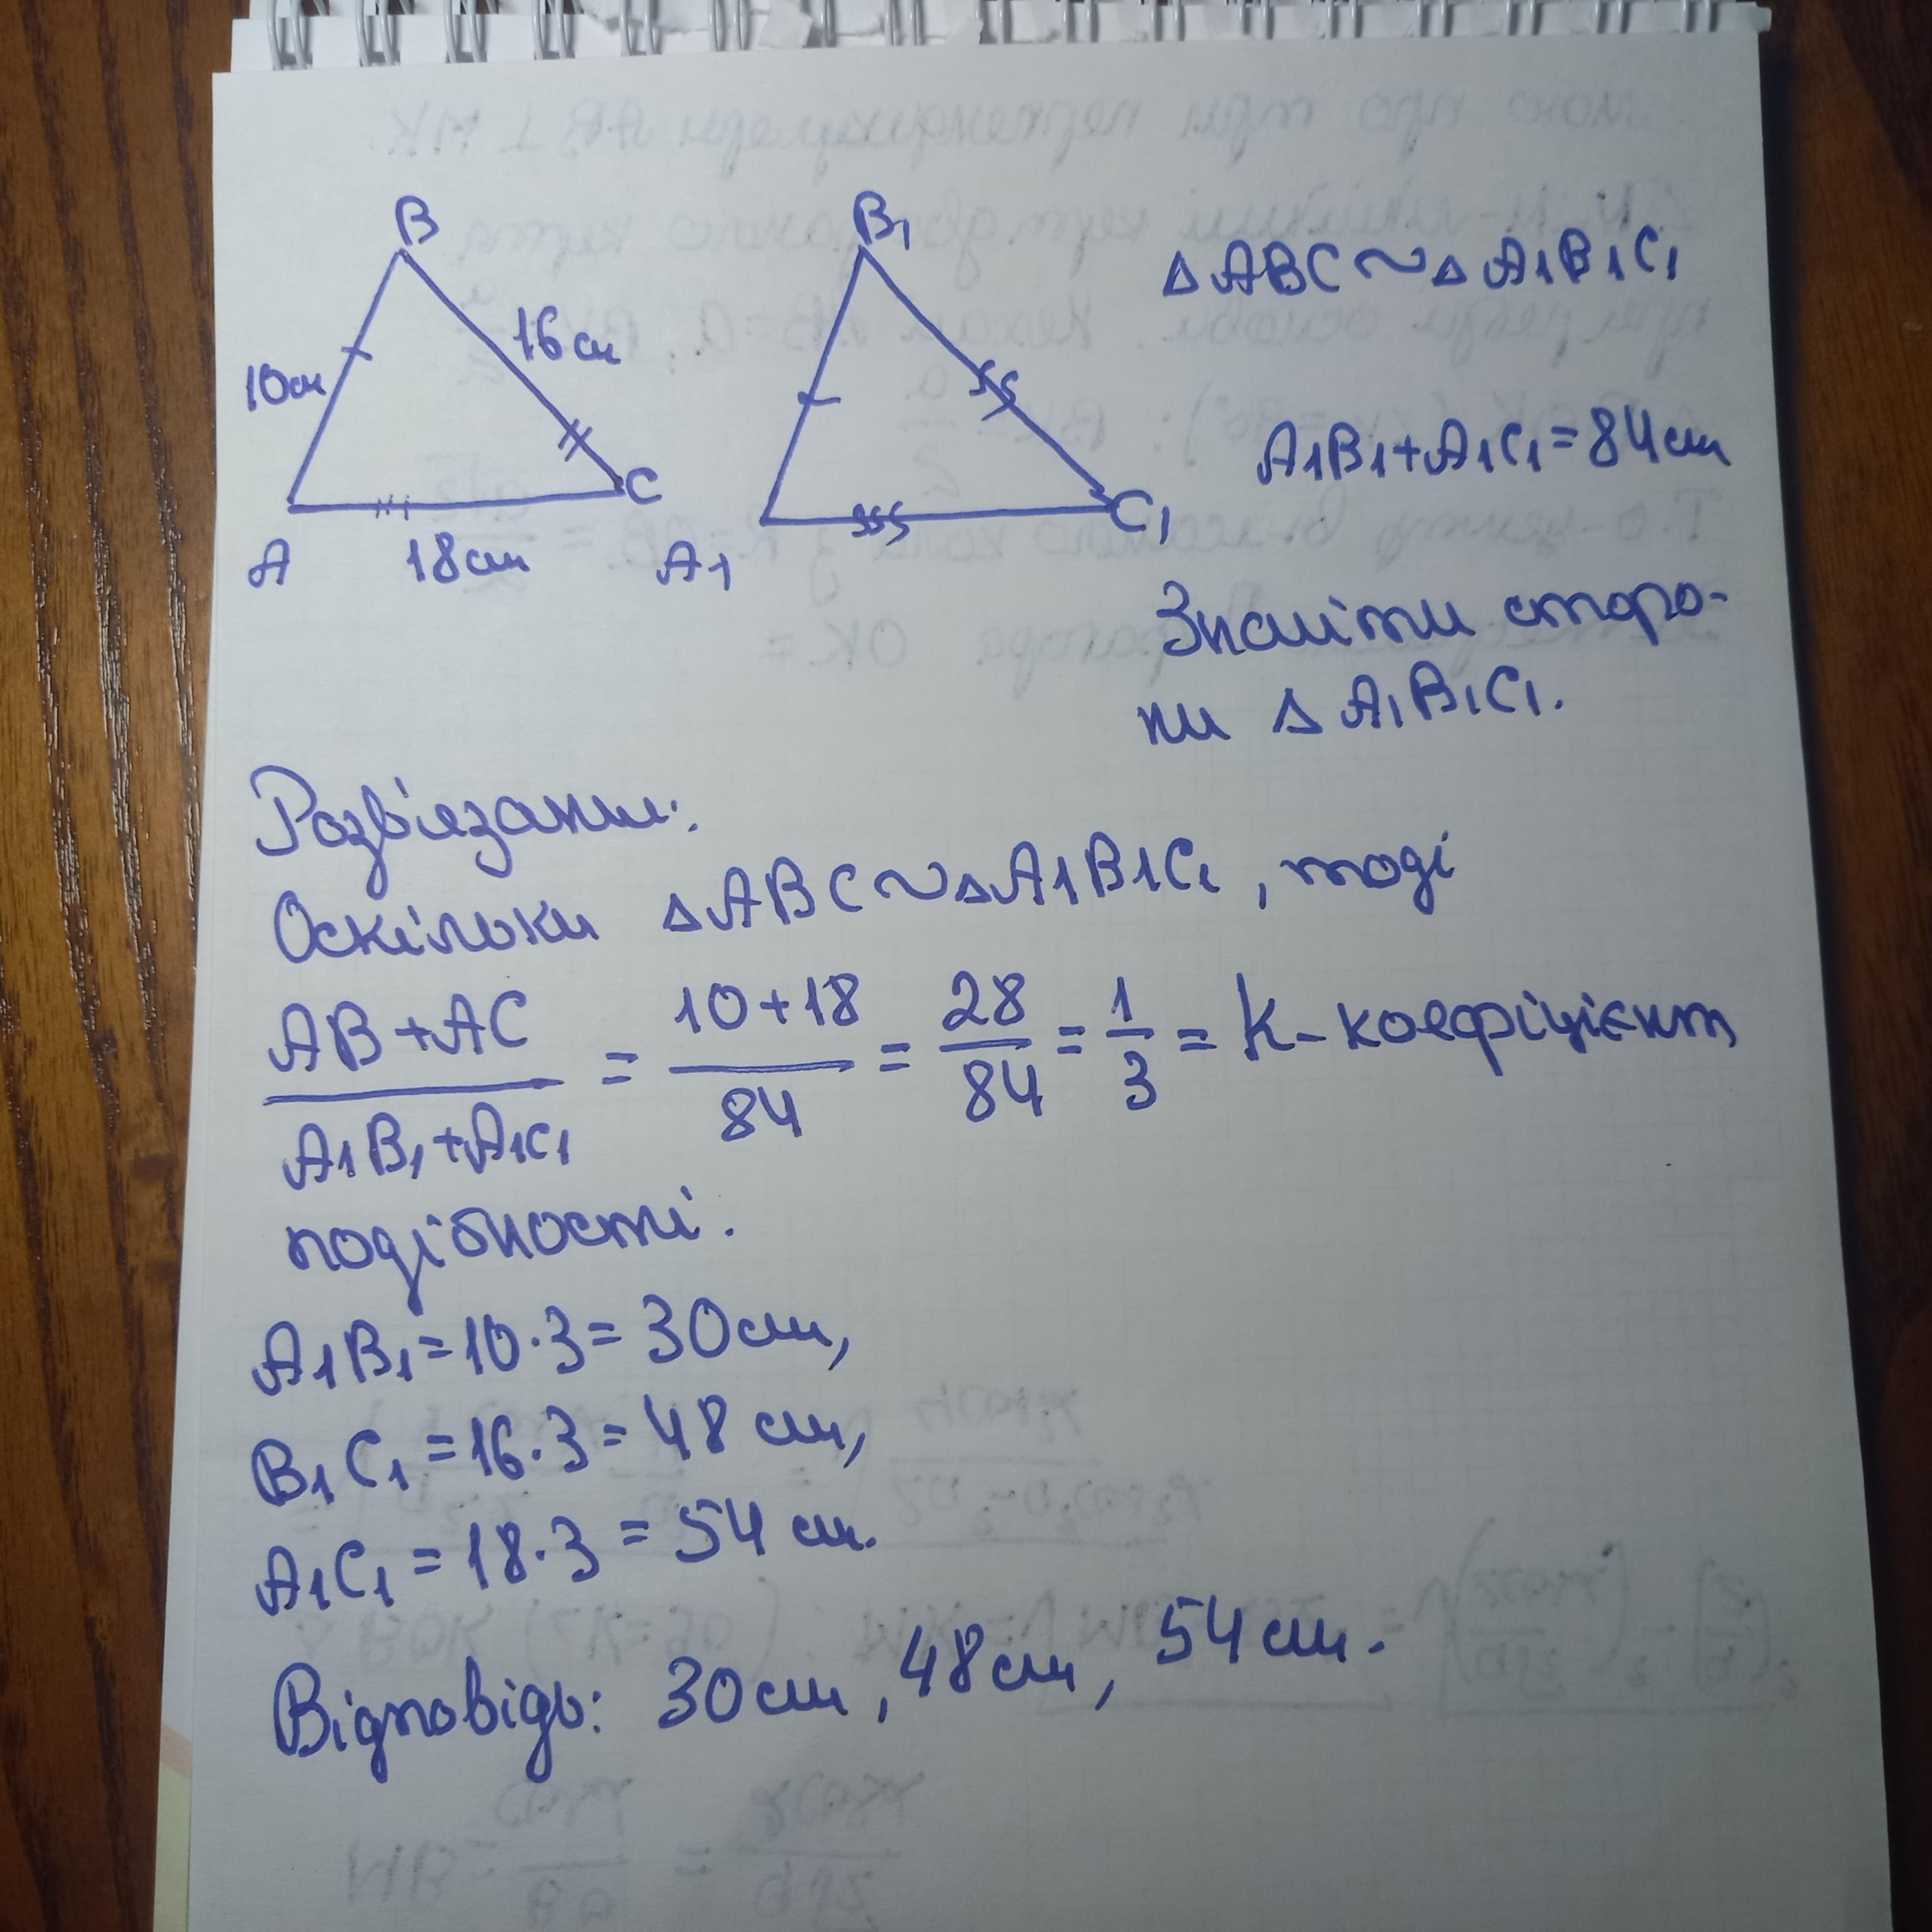 B
B₁
10см
16см
A
18см
C
A₁
C₁
△ABC ~ △A₁B₁C₁
A₁B₁+A₁C₁=84см
Знайти сторо-
ни △A₁B₁C₁.
Розв'язання:
Оскільки △ABC ~ △A₁B₁C₁, тоді
(AB+AC)/(A₁B₁+A₁C₁) = (10+18)/84 = 28/84 = 1/3 = k - коефіцієнт
подібності.
A₁B₁=10·3=30см,
B₁C₁=16·3=48 см,
A₁C₁=18·3=54 см.
Відповідь: 30см, 48см, 54см.